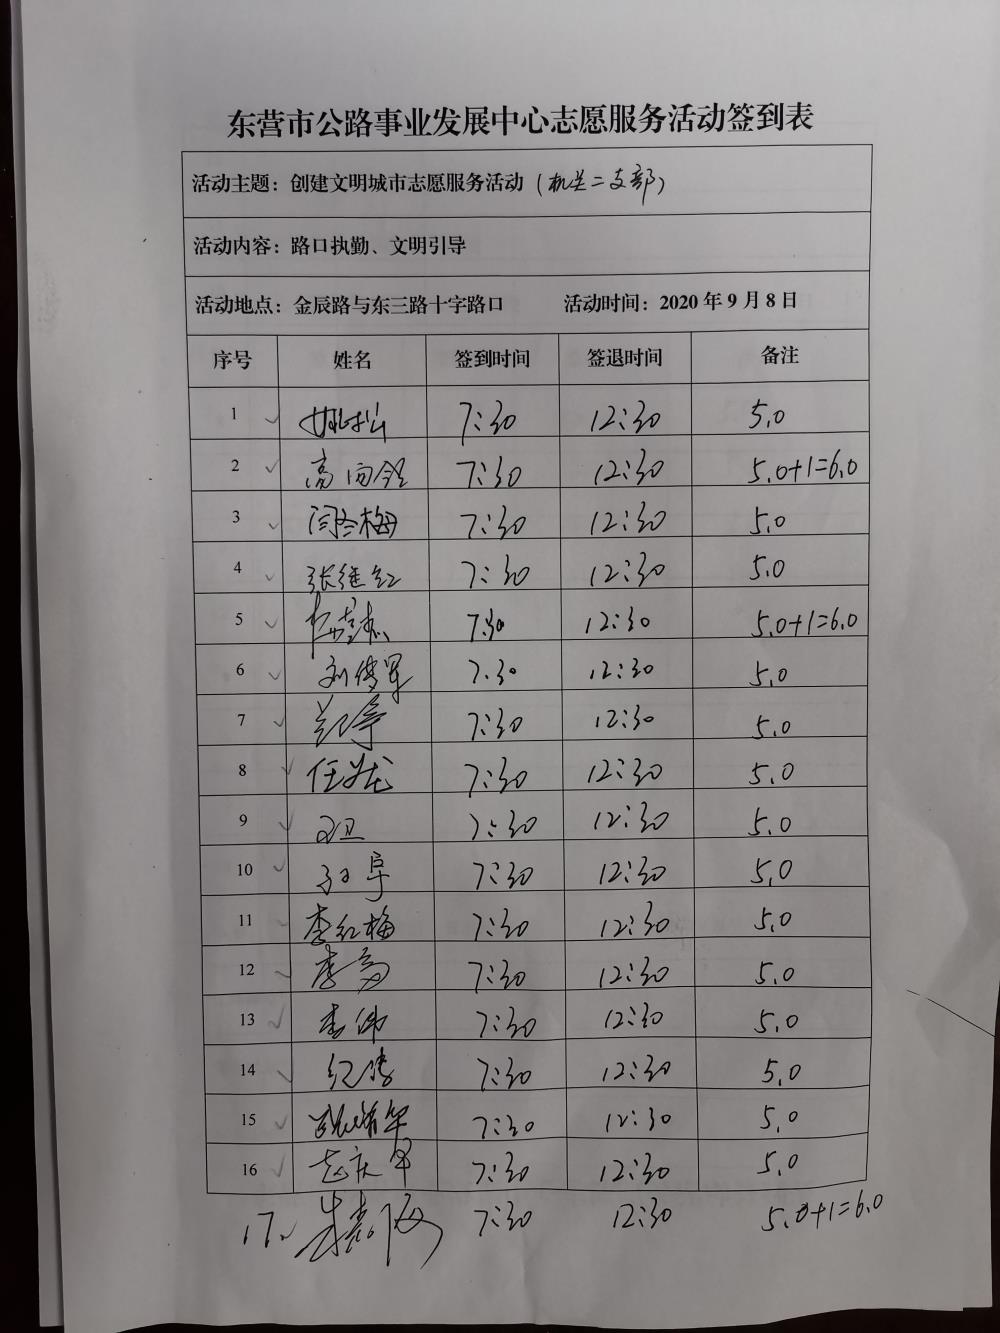 东营市公路事业发展中心志愿服务活动签到表
活动主题：创建文明城市志愿服务活动（机关二支部）
活动内容：路口执勤、文明引导
活动地点：金辰路与东三路十字路口 活动时间：2020年9月8日
序号 姓名 签到时间 签退时间 备注
1 7:30 12:30 5.0
2 7:30 12:30 5.0+1=6.0
3 闫冬梅 7:30 12:30 5.0
4 张继红 7:30 12:30 5.0
5 7:30 12:30 5.0+1=6.0
6 刘传军 7:30 12:30 5.0
7 7:30 12:30 5.0
8 7:30 12:30 5.0
9 7:30 12:30 5.0
10 7:30 12:30 5.0
11 李红梅 7:30 12:30 5.0
12 7:30 12:30 5.0
13 李伟 7:30 12:30 5.0
14 7:30 12:30 5.0
15 7:30 12:30 5.0
16 7:30 12:30 5.0
17. 7:30 12:30 5.0+1=6.0